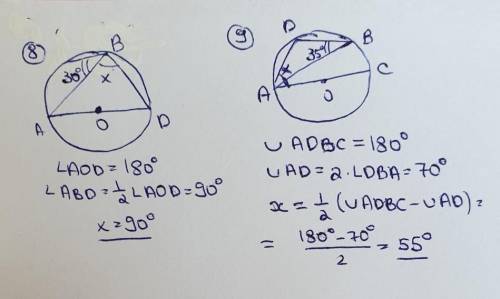 8
B
30°
x
A
O
D
∠AOD = 180°
∠ABD = 1/2 ∠AOD = 90°
x = 90°
9
D
B
35°
x
C
A
O
∪ ADBC = 180°
∪AD = 2 · ∠DBA = 70°
x = 1/2 (∪ADBC - ∪AD) =
= (180° - 70°)/2 = 55°